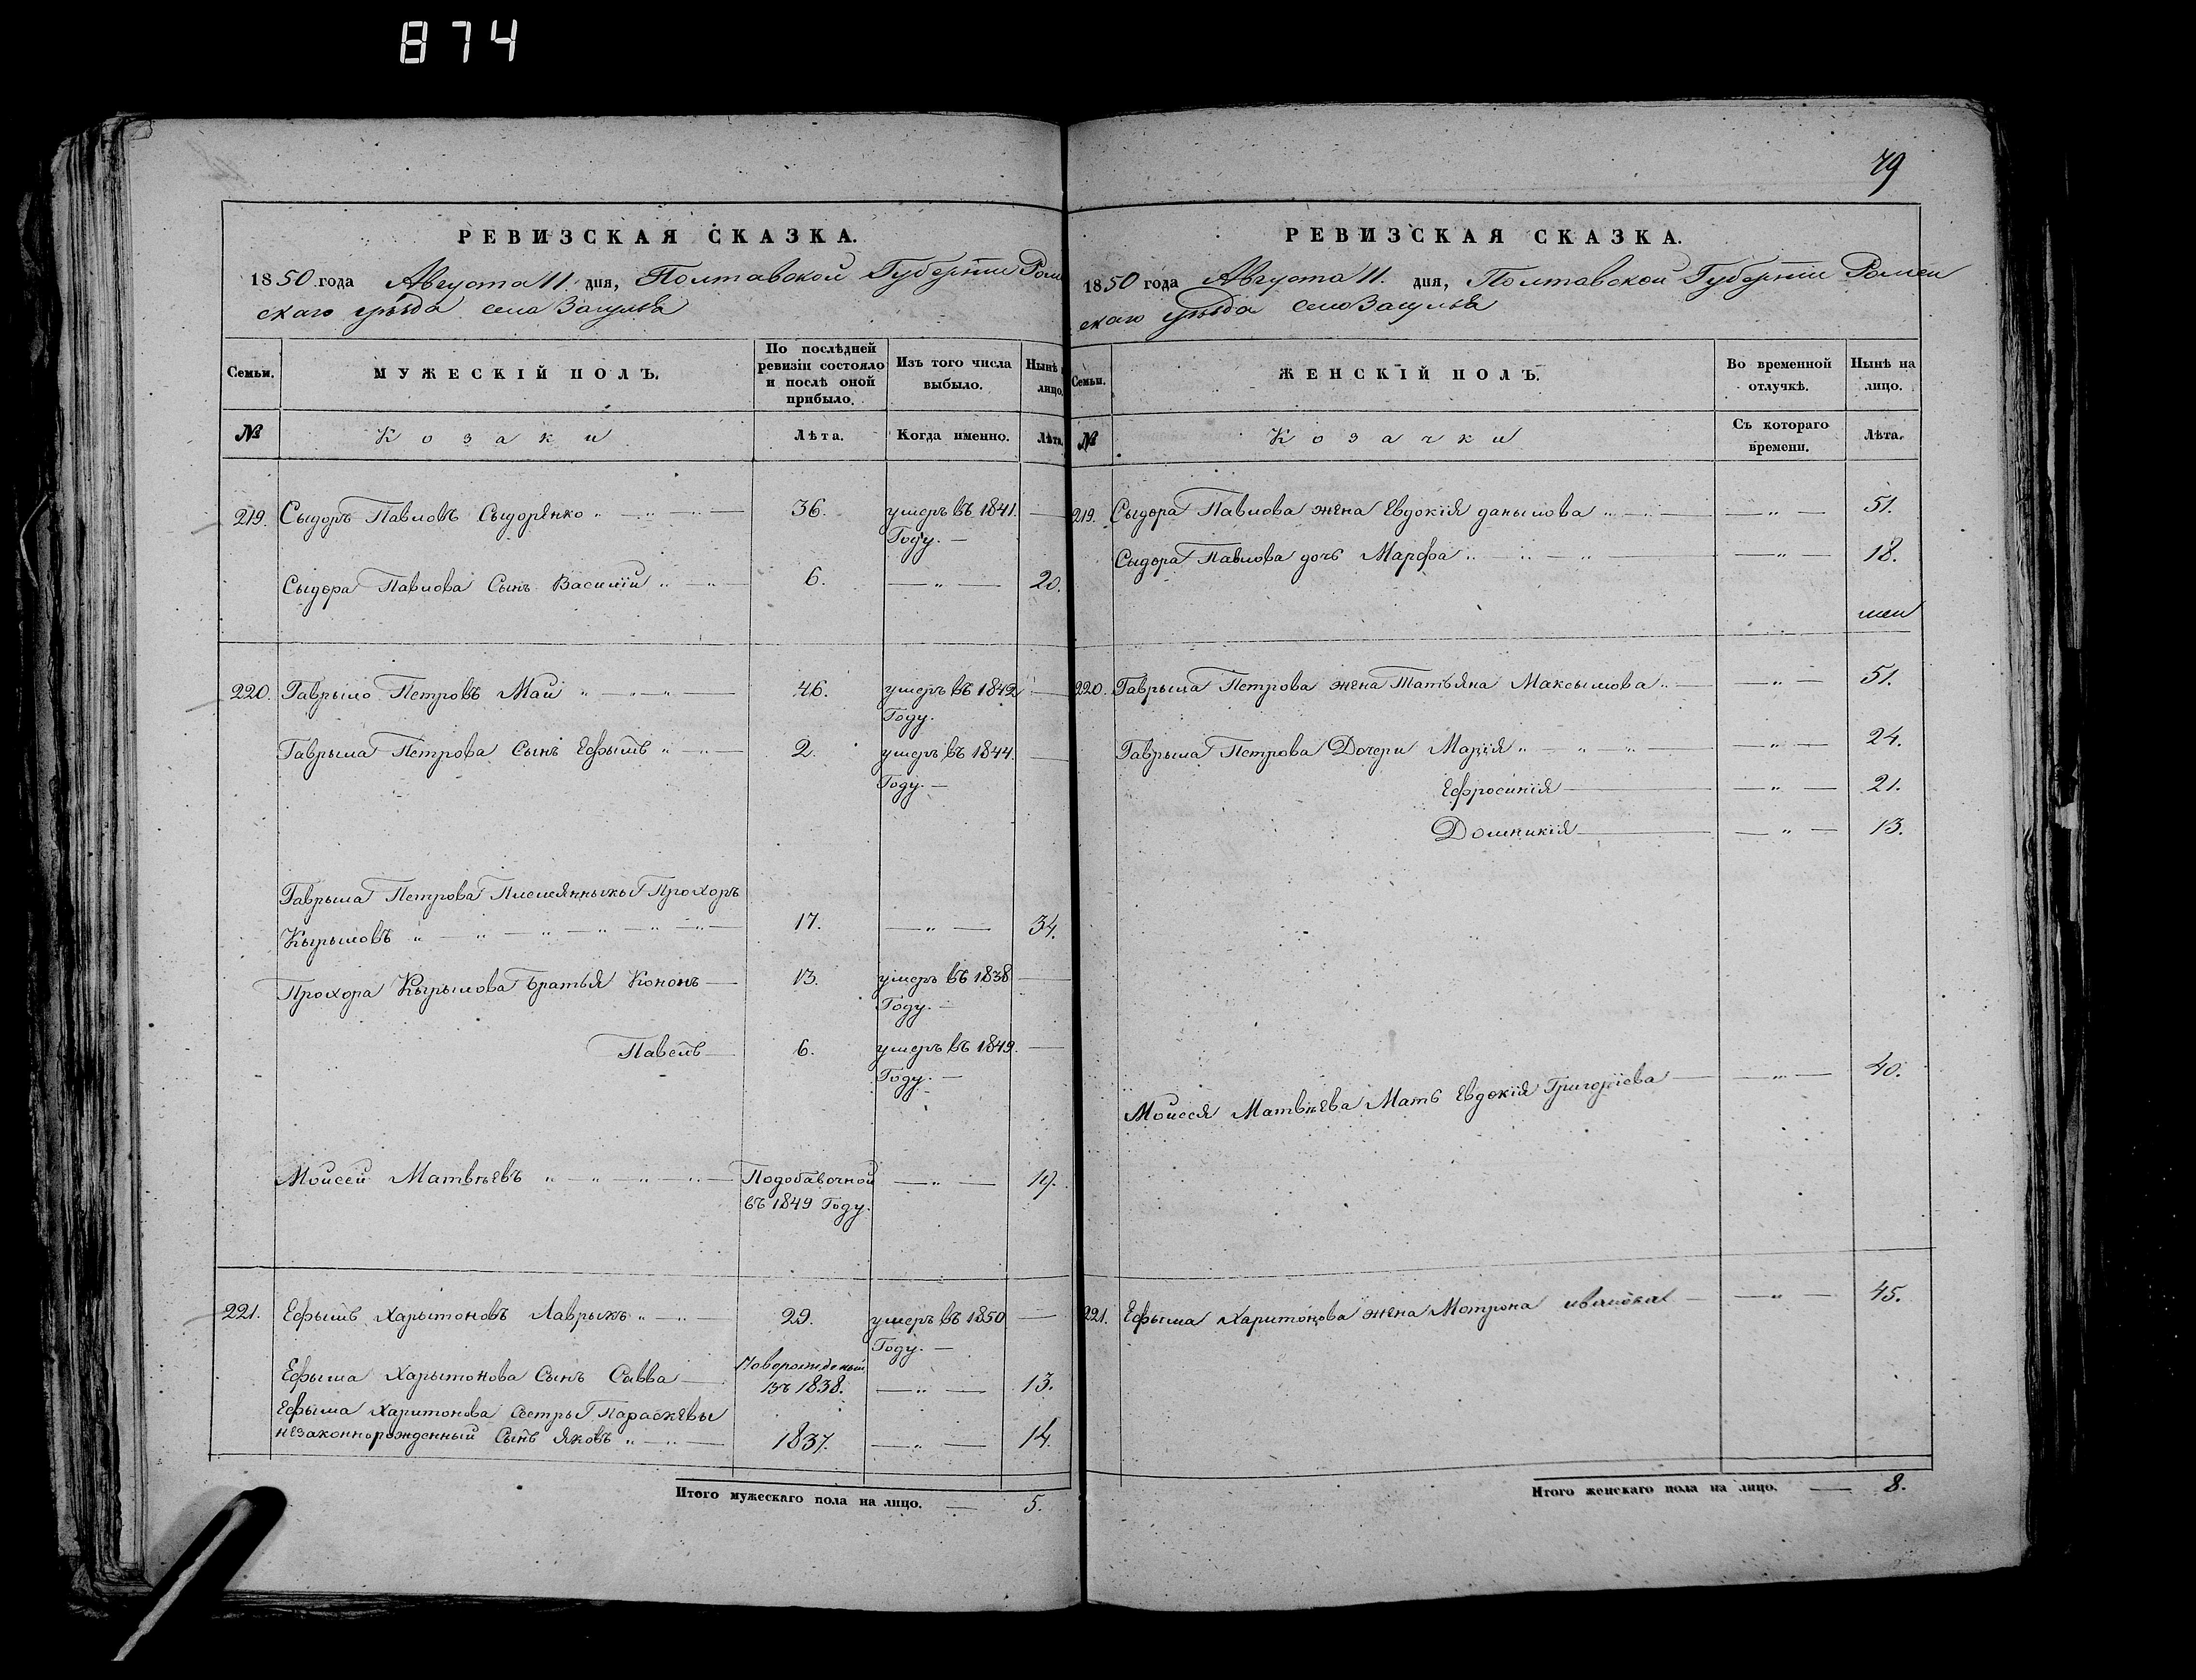 874
РЕВИЗСКАЯ СКАЗКА.
1850 года Августа 11 дня, Полтавской Губернїи Ромен
скаго уѣзда села Засулья
Семьи. МУЖЕСКІЙ ПОЛЪ. По послѣдней ревизіи состояло и послѣ оной прибыло. Изъ того числа выбыло. Нынѣ лицо.
№ Козаки Лѣта. Когда именно. Лѣта.
219. Сыдоръ Павловъ Сыдоренко „ — „ — „ — 36. умеръ въ 1841. —
Году. —
Сыдора Павлова Сынъ Василій „ — „ — 6. — „ — 20.
220. Гаврыло Петровъ Май „ — „ — „ — 46. умеръ въ 1842 —
Году.
Гаврыла Петрова Сынъ Ефымъ „ — „ — 2. умеръ въ 1844. —
Году. —
Гаврыла Петрова Племянныкы Прохоръ
Кырыловъ „ — „ — „ — „ — „ — „ — 17. — „ — 34.
Прохора Кырылова братья Кононъ — 13. умеръ въ 1838 —
Году. —
Павелъ — 6. умеръ въ 1849. —
Году. —
Моисей Матвѣевъ „ — „ — „ — „ — Подобавочной — „ — 19.
въ 1849 Году.
221. Ефымъ Харытоновъ Лаврыкъ „ — „ — 29. умеръ въ 1850 —
Году. —
Ефыма Харытонова Сынъ Савва — Новорожденый
въ 1838. — „ — 13.
Ефыма Харитонова Сестры Параскевы
незаконнорожденный Сынъ Яковъ „ — „ — 1837. — „ — 14.
Итого мужескаго пола на лицо. — 5.
79
РЕВИЗСКАЯ СКАЗКА.
1850 года Августа 11. дня, Полтавской Губернїи Ромен
скаго уѣзда села Засулья
Семьи. ЖЕНСКІЙ ПОЛЪ. Во временной отлучкѣ. Нынѣ на лицо.
№ Козачки Съ котораго времени. Лѣта.
219. Сыдора Павлова жена Евдокія данылова „ — „ — — „ — 51.
Сыдора Павлова дочь Марфа „ — „ — „ — — „ — 18.
220. Гаврыла Петрова жена Татьяна Максымова „ — — „ — 51.
Гаврыла Петрова Дочери Марія „ — „ — „ — — „ — 24.
Ефросинія — — „ — 21.
Домникія — — „ — 13.
Моисея Матвѣева Мать Евдокія Григоріева — — „ — 40.
221. Ефыма Харитонова жена Мотрона — — „ — 45.
Итого женскаго пола на лицо. — 8.